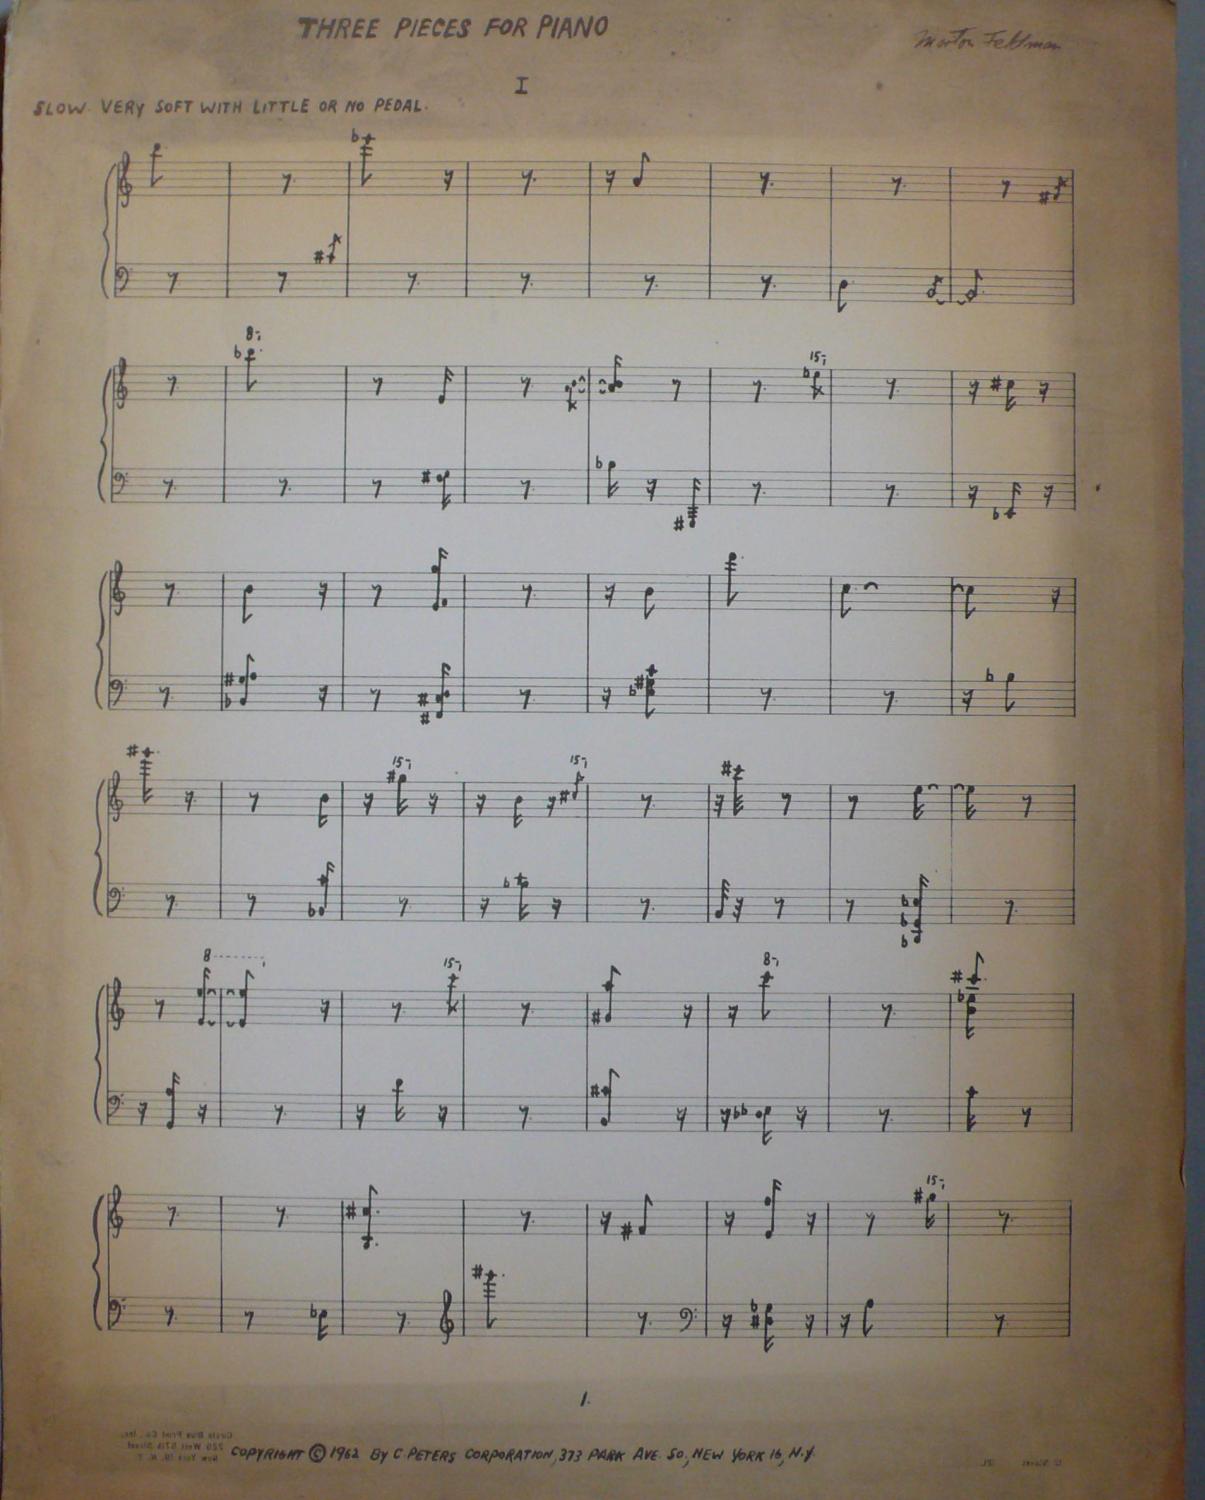 THREE PIECES FOR PIANO
Morton Feldman
I
SLOW. VERY SOFT WITH LITTLE OR NO PEDAL.
8
15
15
15
8
15
8
15
1.
COPYRIGHT © 1962 BY C. PETERS CORPORATION, 373 PARK AVE. SO, NEW YORK 16, N.Y.